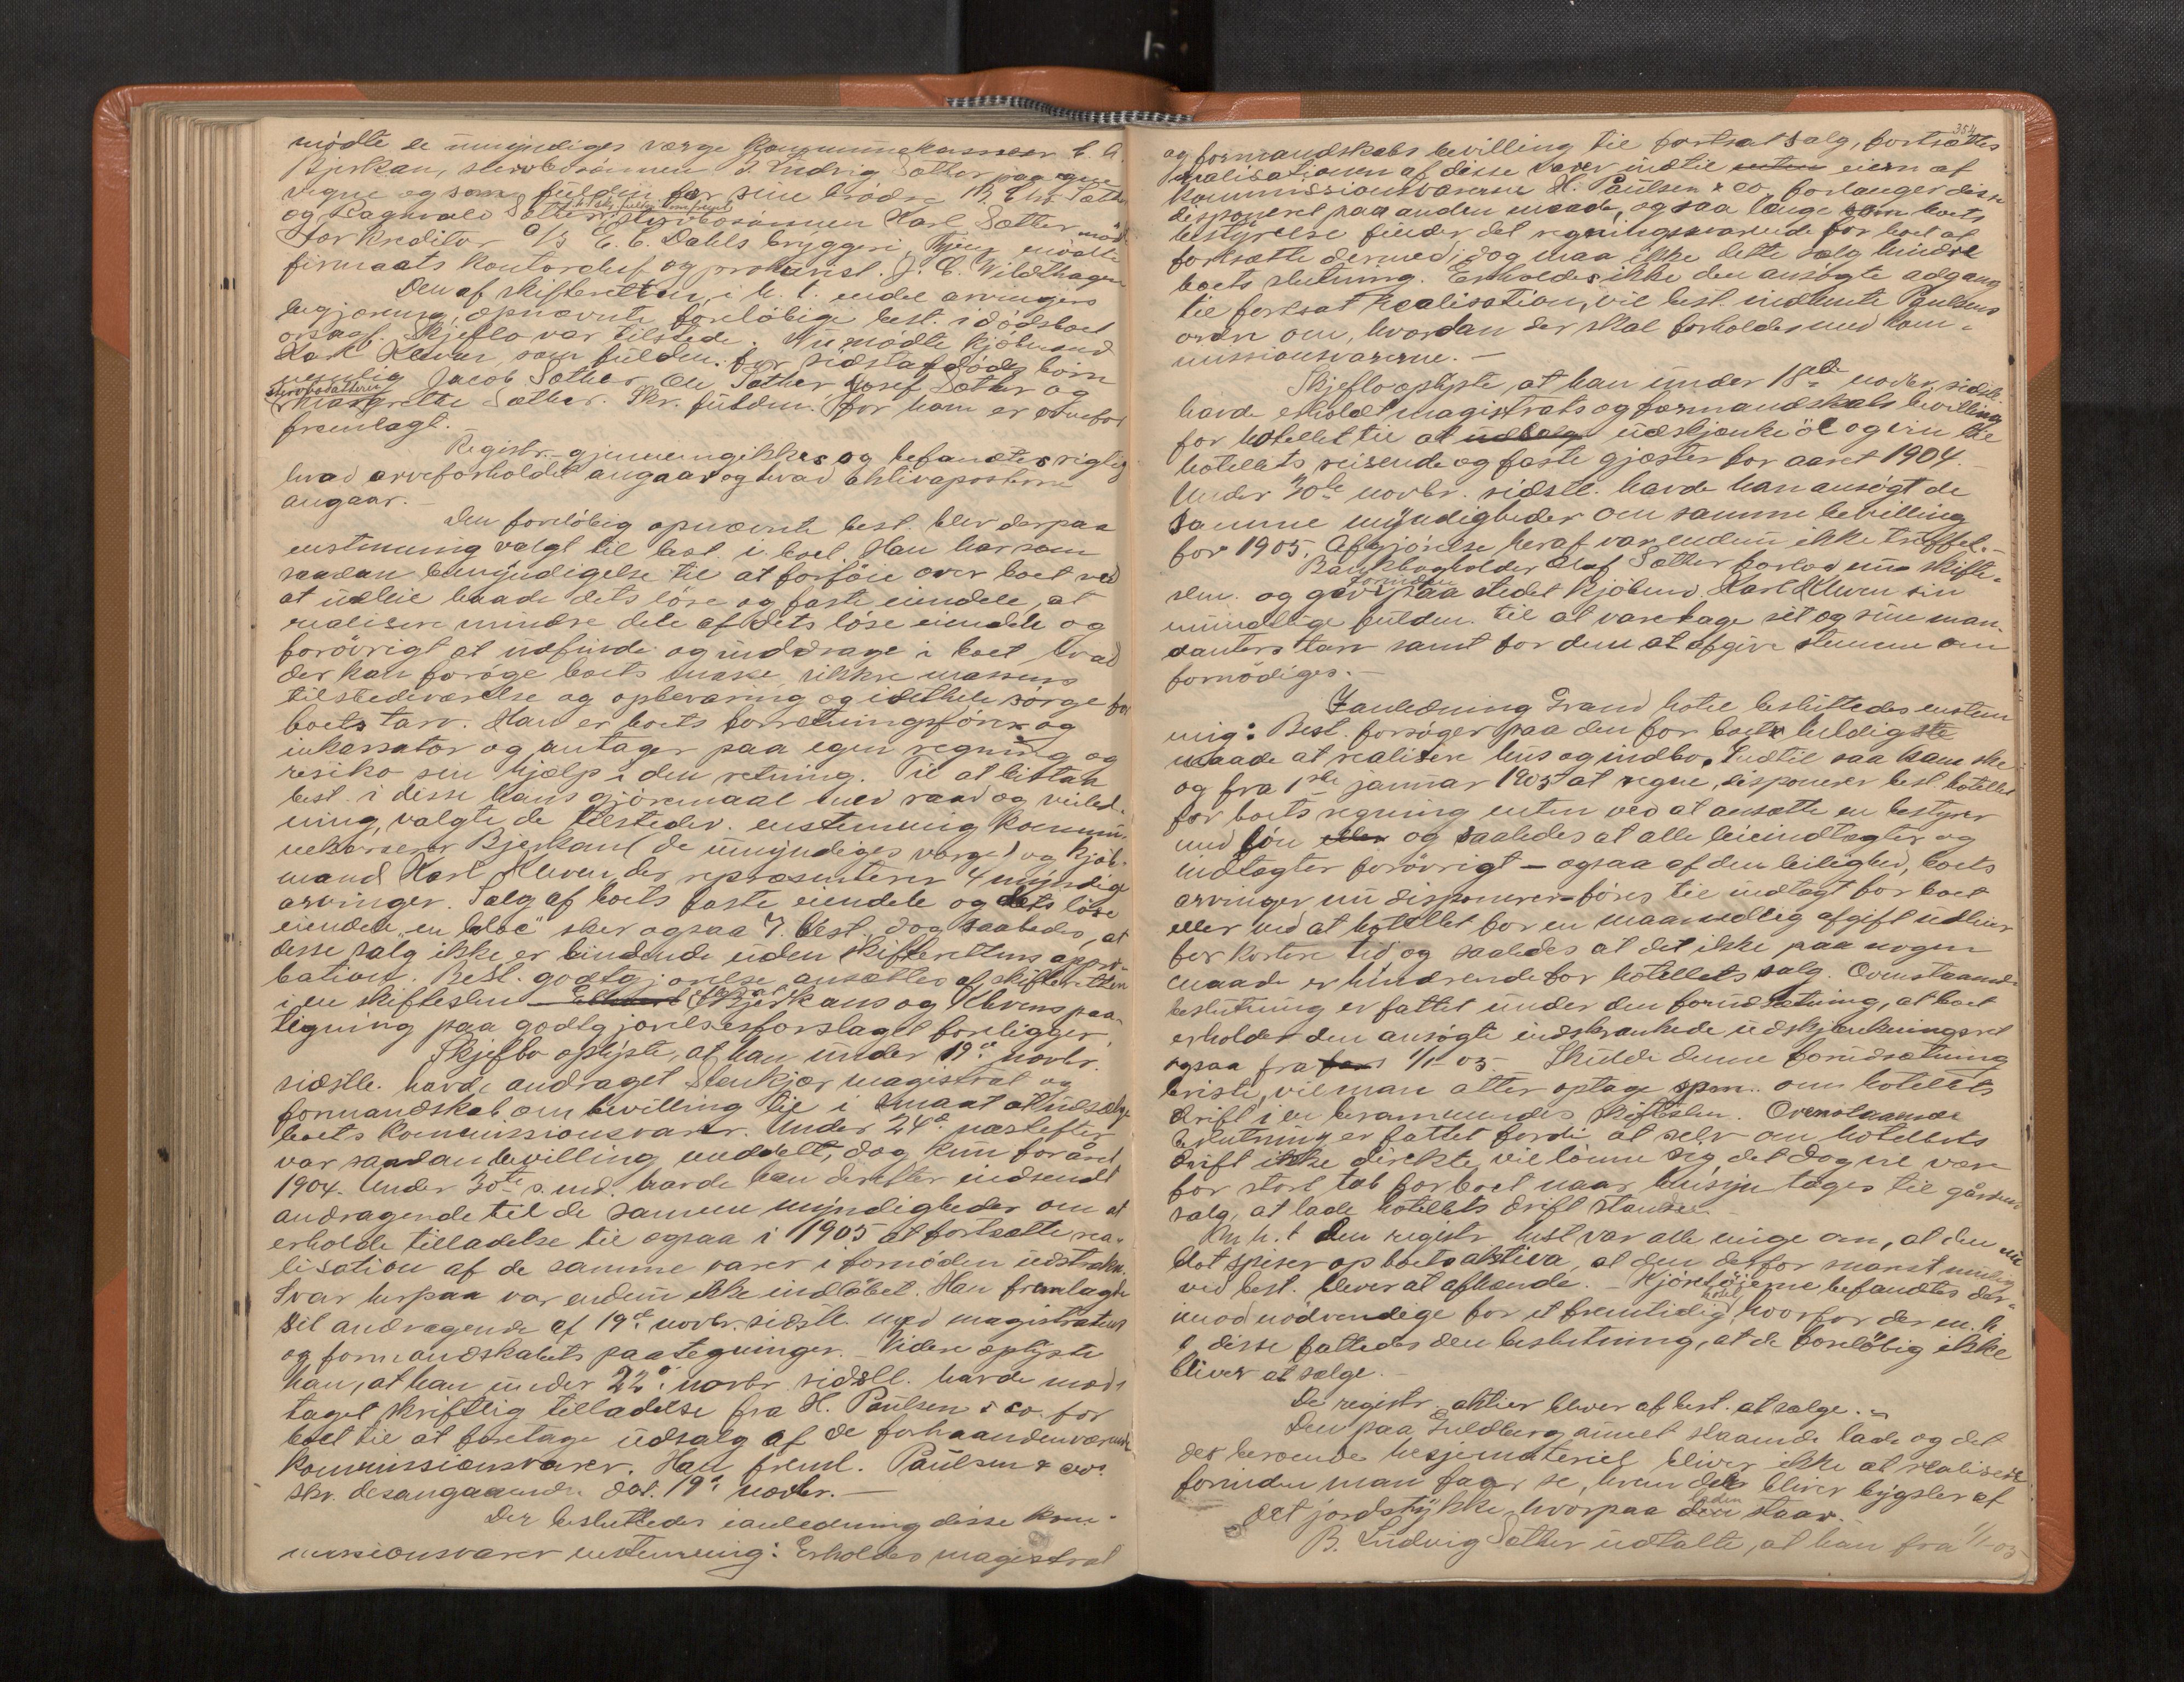 mödte de umyndiges værge kommunekasserer C. A.
Bjerkan, stervbosönnen B. Ludvig Sæther paa egne
vegne og som fuldm. for sine brödre B. Chr. Sæther
og Ragnvald Sæther, stervbosönnen Karl Sæther möd
For kreditor A/S E. C. Dahls bryggeri, Thjem mödte
firmaets kontorchef og prokurist J. C. Wildhagen
Den af skifteretten, i h. t. endel arvingers
begjæring, opnævnte foreløbige best. i dödsboet
orsagf. Skjeflo var tilstede. Nu mödte kjöbmand
Karl Kleven, som fuldm. for sidstafdöds börn
nemlig Jacob Sæther, Ole Sæther, Josef Sæther og
stervbodatteren
Margrethe Sæther. Skr. fuldm. for ham er ovenfor
fremlagt.
Registr. gjennemgikkes og befandtes rigtig
hvad arveforholdet angaar og hvad aktivaposterne
angaar.
Den foreløbig opnævnte best. blev derpaa
enstemmig valgt til best. i boet. Han har som
saadan bemyndigelse til at forföie over boet ved
at udleie baade dets löse og faste eiendele, at
realisere mindre dele af dets löse eiendele og
forövrigt at udfinde og inddrage i boet hvad
der kan foröge boets masse, sikkre massens
tilstedeværelse og opbevaring og idethele sörge for
boets tarv. Han er boets forretningsförer og
inkassator og antager paa egen regning og
risiko sin hjælp i den retning. Til at bistaa
best. i disse hans gjöremaal med raad og veiled-
ning, valgte de tilstedev. enstemmig kommu-
nekasserer Bjerkan (de umyndiges værge) og kjöb-
mand Karl Kleven, der repræsenterer 4 myndige
arvinger. Salg af boets faste eiendele og dets löse
eiendele "en bloc" sker ogsaa v. best., dog saaledes, at
desse salg ikke er bindende uden skifterettens appro-
bation. Best. godtgjörelse ansættes af skifteretten
i en skiftesln. Bjerkans og Klevens paa-
tegning paa godtgjörelsesforslaget foreligger.
Skjeflo oplyste, at han under 19de novbr.
sidstl. havde andraget Stenkjær magistrat og
formandskab om bevilling til i smaat at udsælge
boets kommissionsvarer. Under 24de næstefter
var saadan bevilling meddelt, dog kun for året
1904. Under 30te s. md. havde han derefter indsendt
andragende til de samme myndigheder om at
erholde tilladelse til ogsaa i 1905 at fortsætte rea-
lisation af de samme varer i fornöden udstrækn.
Svar herpaa var endnu ikke indlöbet. Han fremlagde
sit andragende af 19de novbr. sidstl. med magistratens
og formandskabets paategninger. Videre oplyste
han, at han under 22de novbr. sidstl. havde mod-
taget skriftlig tilladelse fra H. Paulsen & co. for
boet til at foretage udsalg af de forhaandenværende
kommissionsvarer. Han freml. Paulsen & co's
skr. desangaaende dat. 19de novbr.
Der besluttedes ianledning disse kom-
missionsvarer enstemmig: Erholdes magistrat
354
og formandskabs bevilling til fortsat salg, fortsættes
realisationen af disse varer indtil eieren af
kommissionsvarerne H. Paulsen & co. forlanger disse
disponeret paa anden maade, og saa længe som boets
bestyrelse finder det regningssvarende for boet at
fortsætte dermed; dog maa ikke dette salg hindre
boets slutning. Erholdes ikke den ansögte adgang
til fortsat realisation, vil best. indhente Paulsens
ordre om, hvordan der skal forholdes med kom-
missionsvarerne.
Skjeflo oplyste, at han under 18de novbr. sidstl.
havde erholdt magistrats og formandskabs bevilling
for hotellet til at udskjenke öl og vin til
hotellets reisende og faste gjæster for aaret 1904.
Under 30te novbr. sidstl. havde han ansögt de
samme myndigheder om samme bevilling
for 1905. Afgjörelse heraf var endnu ikke truffet.
Bankbogholder Olaf Sæther forlod nu skifte-
sln. og gav forinden paa stedet kjöbmd. Karl Kleven sin
mundtlige fuldm. til at varetage sit og sine man-
danters tarv samt for dem at afgive stemme om
fornödiges.
I anledning Grand hotel besluttedes enstem-
mig: Best. forsöger paa den for boet heldigste
maade at realisere hus og indbo. Indtil saa kan ske
og fra 1ste januar 1905 at regne, disponerer best. hotellet
for boets regning enten ved at ansætte en bestyrer
med lön og saaledes at alle leieindtægter og
indtægter forövrigt - ogsaa af den leilighed, boets
arvinger nu disponerer - föres til indtægt for boet
eller ved at hotellet for en maanedlig afgift udleies
for kortere tid og saaledes at det ikke paa nogen
maade er hindrende for hotellets salg. Ovenstaaende
beslutning er fattet under den forudsætning, at boet
erholder den ansögte indskrænkede udskjænkningsret
ogsaa fra 1/1-05. Skulde denne forudsætning
briste, vil man atter optage spm. om hotellets
drift i en berammendes skiftesln. Ovenstaaende
beslutning er fattet fordi at selv om hotellets
drift ikke direkte vil lönne sig, det dog vil være
for stort tab for boet naar hensyn tages til gårdens
salg, at lade hotellets drift standse.
M. h. t. den registr. hest var alle enige om, at den nu
blot spiser op boets aktiva, at den derfor snarest mulig
ved best. bliver at afhænde. Kjöretöierne befandtes der-
imod nödvendige for et fremtidig hotel, hvorfor der m. h.
t. disse fattedes den beslutning, at de foreløbig ikke
bliver at sælge.
De registr. aktier bliver af best. at sælge.
Den paa Guldbergaunet staaende lade og det
der beroende hesjemateriel bliver ikke at realisere
forinden man faar se, hvem der bliver bygsler af
det jordstykke, hvorpaa laden staar.
B. Ludvig Sæther udtalte, at han fra 1/1-05